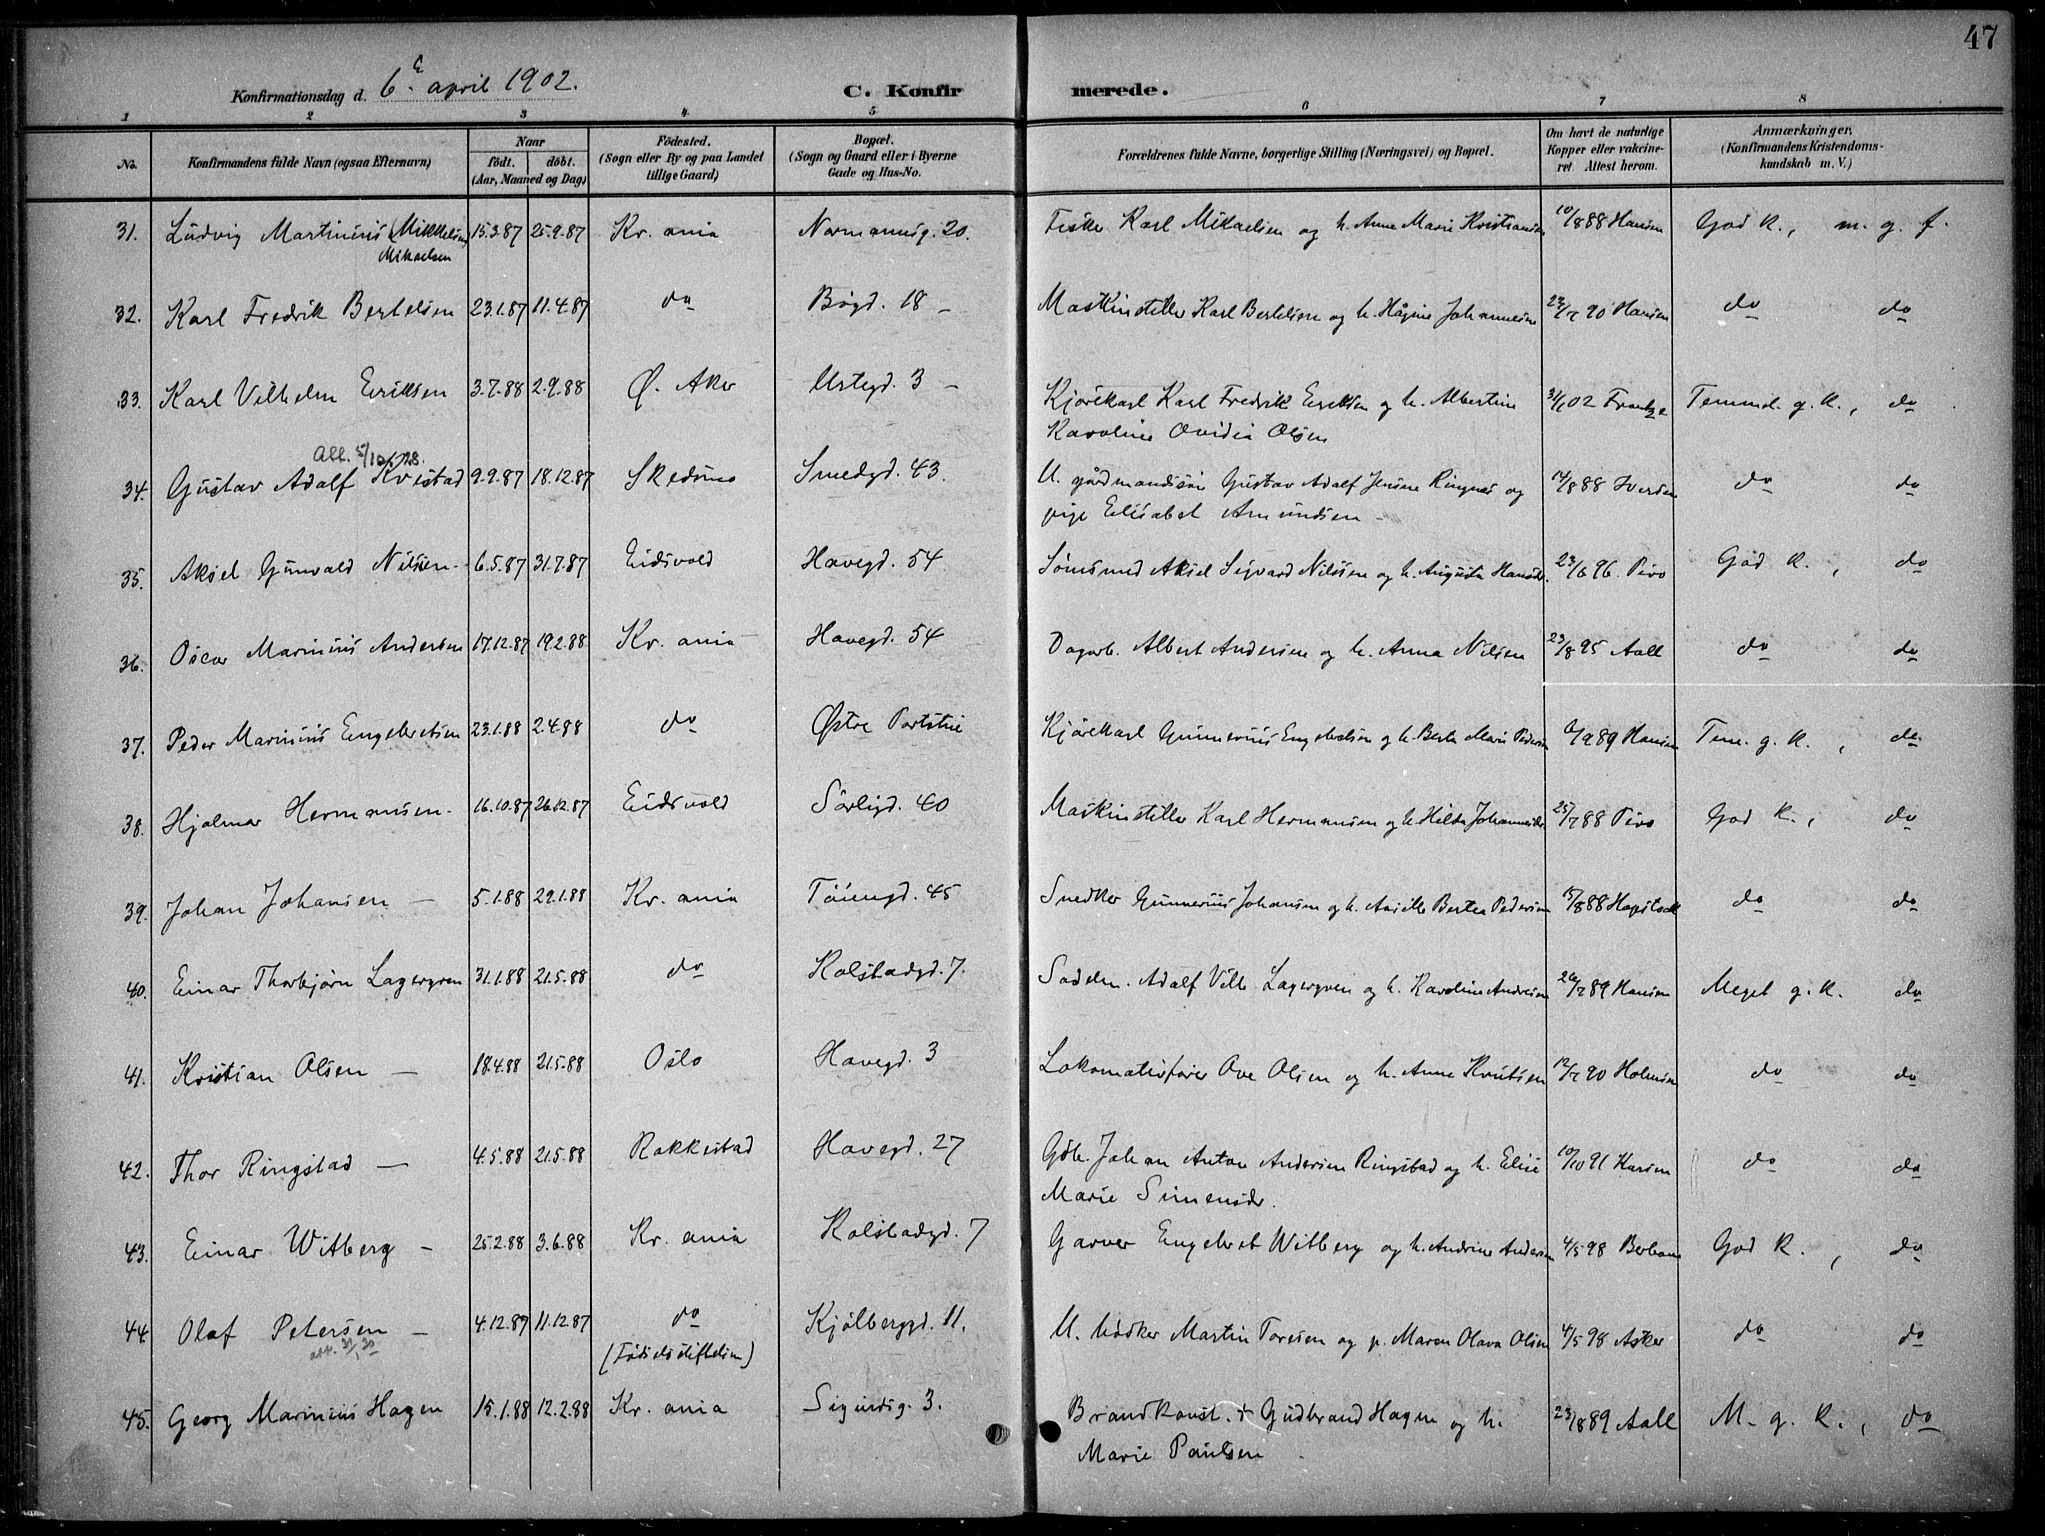 47
Konfirmationsdag d. 6te april 1902. C. Konfirmerede.
1 2 3 4 5 6 7 8
No. Konfirmandens fulde Navn (ogsaa Efternavn) Naar födt. döbt. (Aar, Maaned og Dag) Födested. (Sogn eller By og paa Landet tillige Gaard) Bopæl. (Sogn og Gaard eller i Byerne Gade og Hus-No. Forældrenes fulde Navne, borgerlige Stilling (Næringsvei) og Bopæl. Om havt de naturlige Kopper eller vakcineret. Attest herom. Anmærkninger, (Konfirmandens Kristendomskundskab m. V.)
31. Ludvig Martinius (Mikkelsen 15.3.87 25.9.87 Kr. ania Normannsg. 20. Fisker Karl Mikaelsen og h. Anne Marie Kristiansen 10/8 88 Hansen God k., m. g. f.
Mikaelsen
32. Karl Fredrik Bertelsen 23.1.87 11.4.87 do Bøgd. 18 – Maskinstiller Karl Bertelsen og h. Hågine Johannesen 23/7 90 Hansen do do
33. Karl Vilhelm Eriksen 3.7.88 2.9.88 Ø. Aker Urtegd. 3 – Kjørekarl Karl Fredrik Eriksen og h. Albertine 31/1 02 Temmel. g. k., do
Karoline Ovidia Olsen
Att. 5/10 28.
34. Gustav Adolf Kvistad 9.9.87 18.12.87 Skedsmo Smedgd. 43. U. gårdmandssøn Gustav Adolf Jensen Ringnes og 14/8 88 Iversen do do
pige Elisabet Amundsen –
35. Aksel Gunvald Nilsen – 6.5.87 31.7.87 Eidsvold Havegd. 54 Aksel Sigvard Nilssen og h. Augusta Hansdr. 23/6 96. Piro God k., do
36. Oscar Marinius Andersen 17.12.87 19.2.88 Kr. ania Havegd. 54 Dagarb. Albert Andersen og h. Anna Nilsen 23/8 95 Aall do do
37. Peder Marinius Engebretsen 23.1.88 2.4.88 do Østre Kjørekarl Gunnerius Engebretsen og h. Berte Marie Pedersen 9 89 Hansen Tem. g. k., do
38. Hjalmar Hermansen – 16.10.87 26.12.87 Eidsvold Sørligd. 40 Maskinstiller Karl Hermansen og h. Hilda Johannesdr. 25/7 88 Piro God k., do
39. Johan Johansen – 5.1.88 29.1.88 Kr. ania Tøiengd. 45 Snedker Gunnerius Johansen og h. Bertea Pedersen 15/8 88 do do
40. Einar Thorbjørn Lagergren 31.1.88 21.5.88 do Kolstadgd. 7. Sadelm. Adolf Vilh. Lagergren og h. Karoline Andresen 26/7 89 Hansen Meget g. k. do
41. Kristian Olsen – 18.4.88 21.5.88 Oslo Havegd. 3 Lokomotivfører Ove Olsen og h. Anne Knutsen 12/7 90 Holmsen do do
42. Thor Ringstad – 4.5.88 21.5.88 Rakkestad Havegd. 27 Gdb. Johan Anton Andersen Ringstad og h. Elise 10/10 91 do do
Marie Simensdr.
43. Einar Witberg – 25.2.88 3.6.88 Kr. ania Kolstadgd. 7 Garver Engebret Witberg og h. Andrine Andersen 4/5 98 God k., do
44. Olaf Petersen – 4.12.87 11.12.87 do Kjølberggd. 11. U. bødker Martin Toresen og p. Maren Olava Olsen 4/5 98 Asker do do
(Fødselsstiftelsen)
45. Georg Marinius Hagen 15.1.88 12.2.88 Kr. ania Sigurdsg. 3. Brandkonst. + Gudbrand Hagen og h. 23/8 89 Aall M. g. k., do
Marie Paulsen